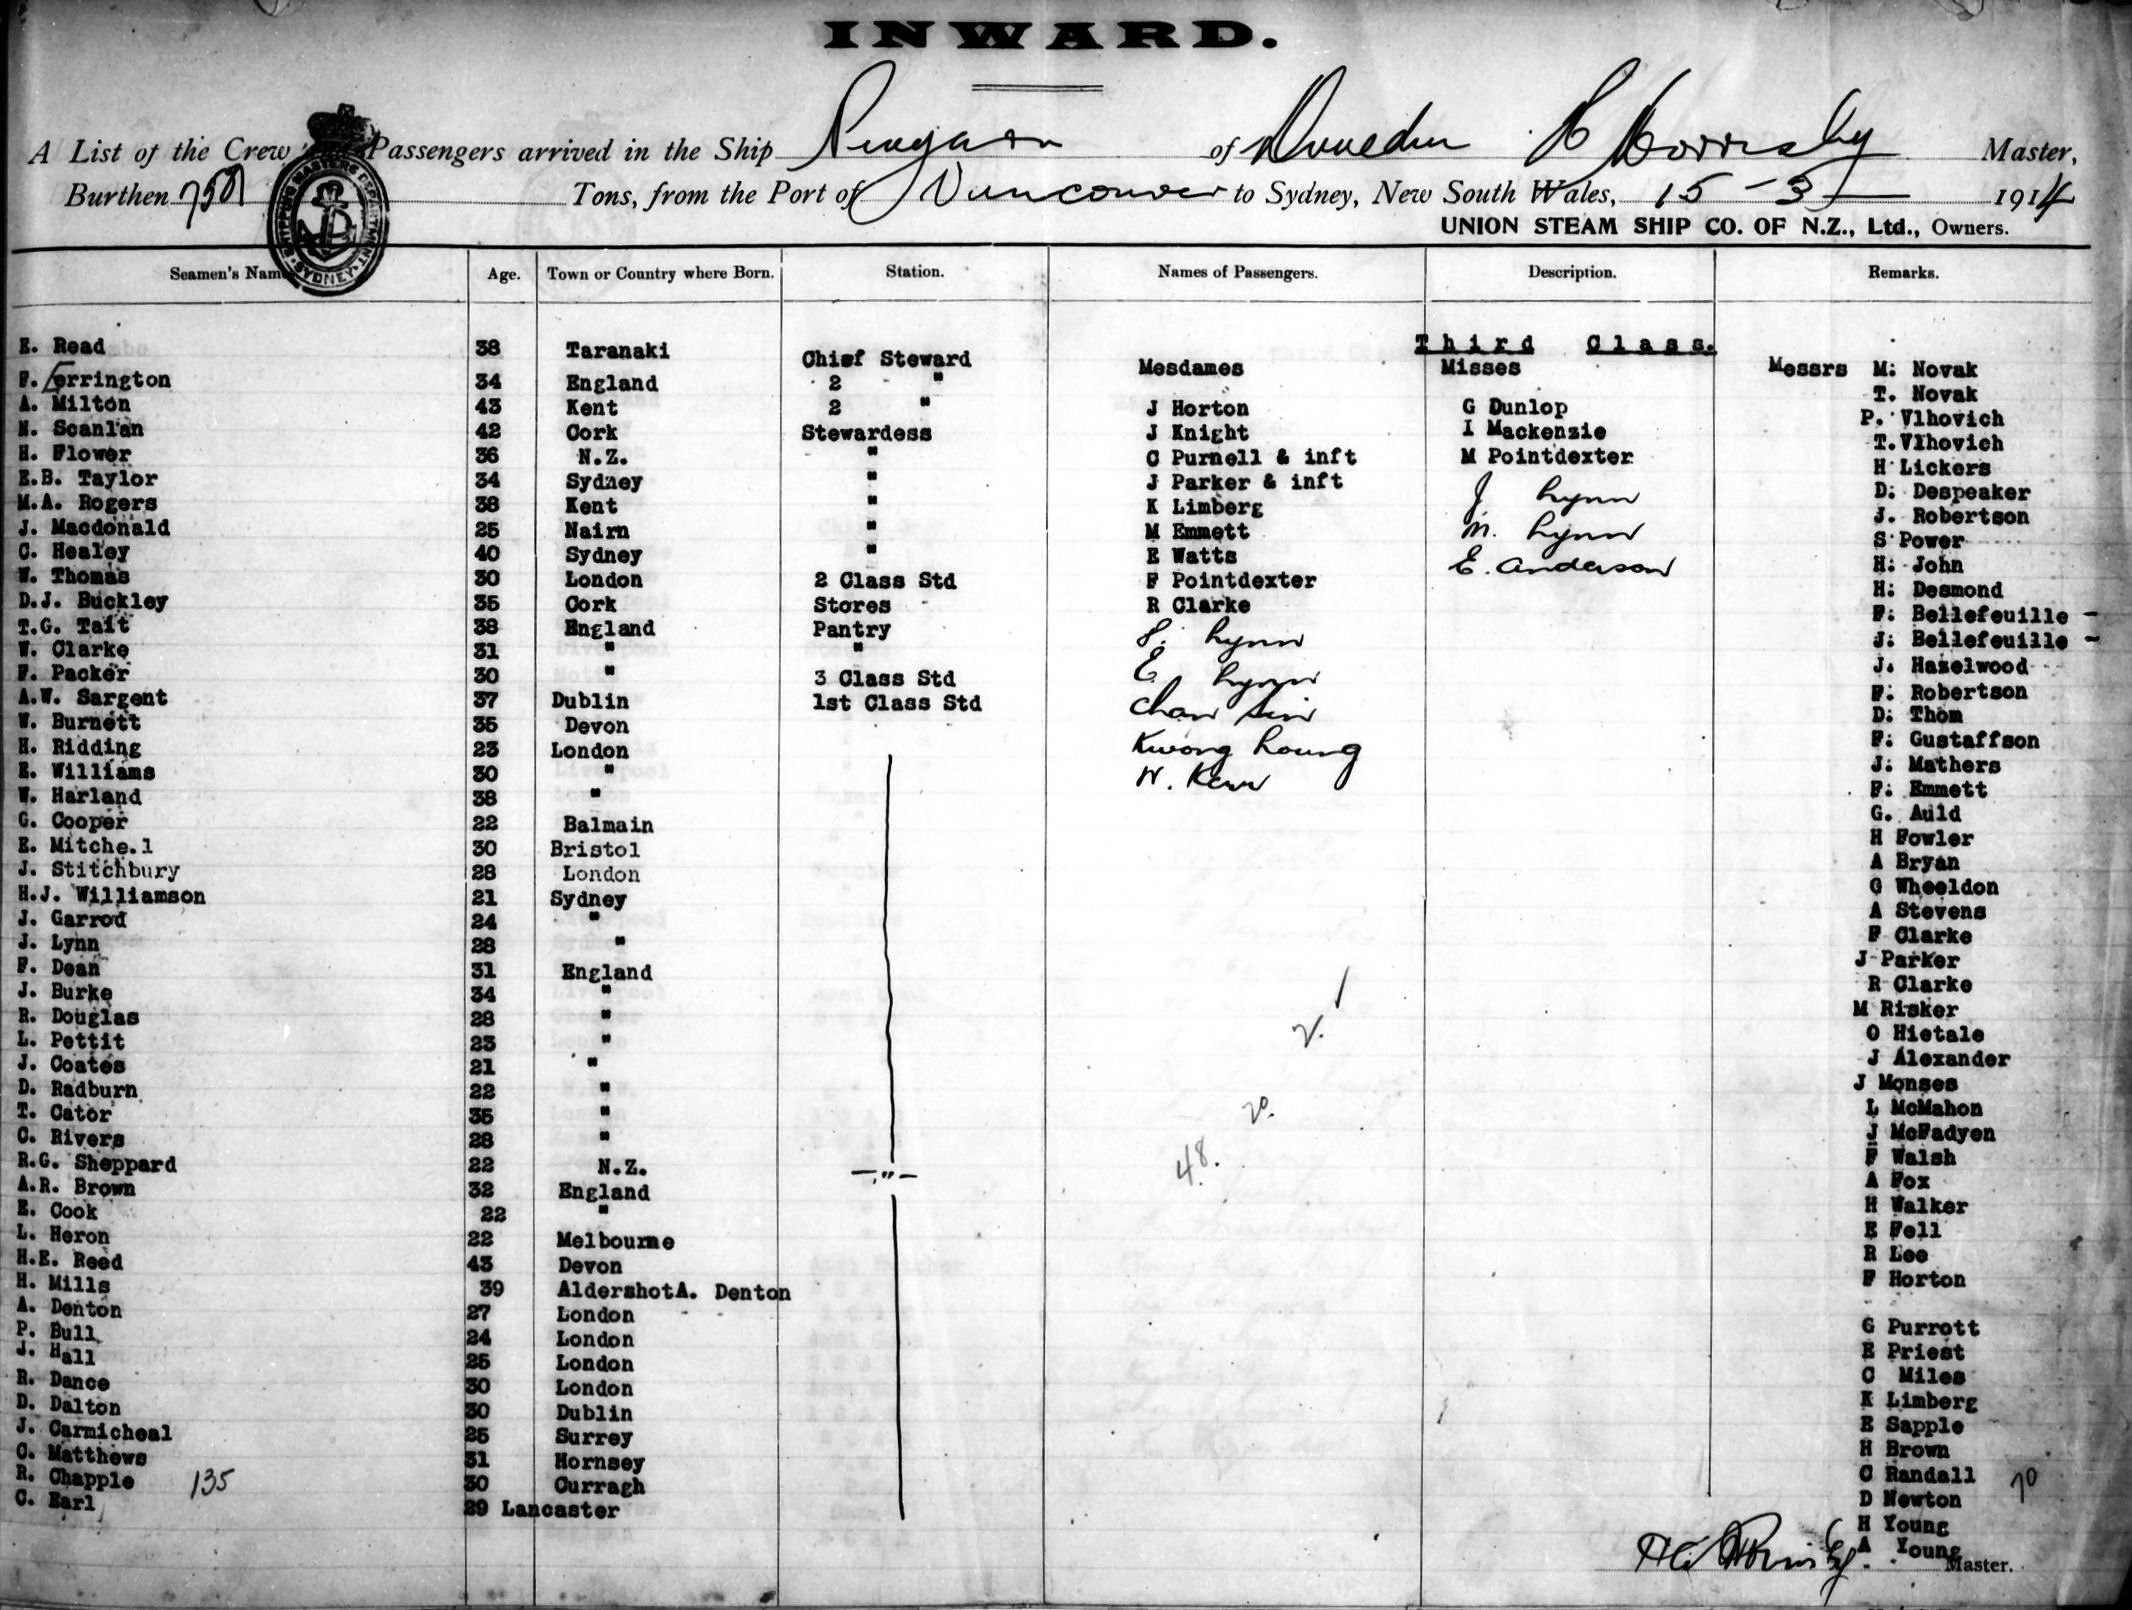 INWARD.
A List of the Crew Passengers arrived in the Ship of Dunedin Master,
Burthen 7581 Tons, from the Port of Vancouver to Sydney, New South Wales, 15 - 3 1914
UNION STEAM SHIP CO. OF N.Z., Ltd., Owners.
SHIPPING MASTERS DEPARTMENT SYDNEY
Seamen's Nam Age. Town or Country where Born. Station. Names of Passengers. Description. Remarks.
Third Class.
E. Read 38 Taranaki Chief Steward Mesdames Misses Messrs M. Novak
F. Lerrington 34 England 2 " T. Novak
A. Milton 43 Kent 2 " J Horton G Dunlop P. Vlhovich
N. Scanlan 42 Cork Stewardess J Knight I Mackenzie T. Vlhovich
H. Flower 36 N.Z. " C Purnell & inft M Pointdexter H Lickers
E.B. Taylor 34 Sydney " J Parker & inft J Lynn D. Despeaker
M.A. Rogers 38 Kent " K Limberg M. Lynn J. Robertson
J. Macdonald 25 Nairn " M Emmett E. Anderson S Power
C. Healey 40 Sydney " E Watts H. John
W. Thomas 30 London 2 Class Std F Pointdexter H. Desmond
D.J. Buckley 35 Cork Stores R Clarke F. Bellefeuille -
T.G. Tait 38 England Pantry S. Lynn J. Bellefeuille -
W. Clarke 31 " " E Lynn J. Haselwood
F. Packer 30 " 3 Class Std Chan Sin F. Robertson
A.W. Sargent 37 Dublin 1st Class Std Kwong Loung D. Thom
W. Burnett 35 Devon W. Kerr F. Gustaffson
H. Ridding 23 London J. Mathers
E. Williams 30 " F. Emmett
W. Harland 38 " G. Auld
G. Cooper 22 Balmain H Fowler
E. Mitche.l 30 Bristol A Bryan
J. Stitchbury 28 London G Wheeldon
H.J. Williamson 21 Sydney A Stevens
J. Garrod 24 " F Clarke
J. Lynn 28 " J Parker
F. Dean 31 England R Clarke
J. Burke 34 " M Risker
R. Douglas 28 " 2. O Hietale
L. Pettit 23 " J Alexander
J. Coates 21 " J Monses
D. Radburn 22 " L McMahon
T. Cator 35 " 20. J McFadyen
C. Rivers 28 " F Walsh
R.G. Sheppard 22 N.Z. - " - 48. A Fox
A.R. Brown 32 England H Walker
E. Cook 22 " E Fell
L. Heron 22 Melbourne R Lee
H.E. Reed 43 Devon F Horton
H. Mills 39 AldershotA. Denton
A. Denton 27 London G Purrott
P. Bull 24 London E Priest
J. Hall 25 London C Miles
R. Dance 30 London K Limberg
D. Dalton 30 Dublin E Sapple
J. Carmicheal 25 Surrey H Brown
C. Matthews 31 Hornsey C Randall 70
R. Chapple 135 30 Curragh D Newton
C. Earl 29 Lancaster H Young
A Young
Master.